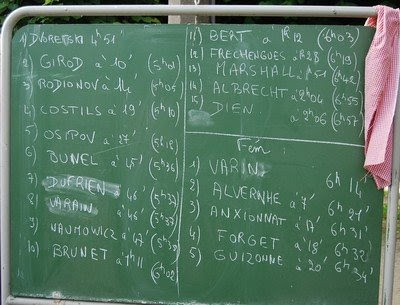 1) DVORETSKI 4h51'
2) GIROD à 10' (5h01)
3) RODIONOV à 14' (5h05)
4) COSTILS à 19' (5h10)
5) OSIPOV à 27' (5h18)
6) BUNEL à 45' (5h36)
7) DUFRIEN à 46' (5h37)
8) VARAIN à 46' (5h37)
9) NAUMOWICZ à 47' (5h38)
10) BRUNET à 1h11 (6h02)
11) BERT à 1h12 (6h03)
12 FRECHENGUES à 1h28 (6h19)
13 MARSHALL à 1h51 (6h42)
14 ALBRECHT à 2h04 (6h55)
15 DIEN. à 2h06 (6h57)
Fém :
1) VARIN 6h14'
2) ALVERNHE à 7' 6h21'
3) ANXIONNAT à 17' 6h31'
4 FORGET à 18' 6h32
5) GUIZONNE à 20' 6h34'